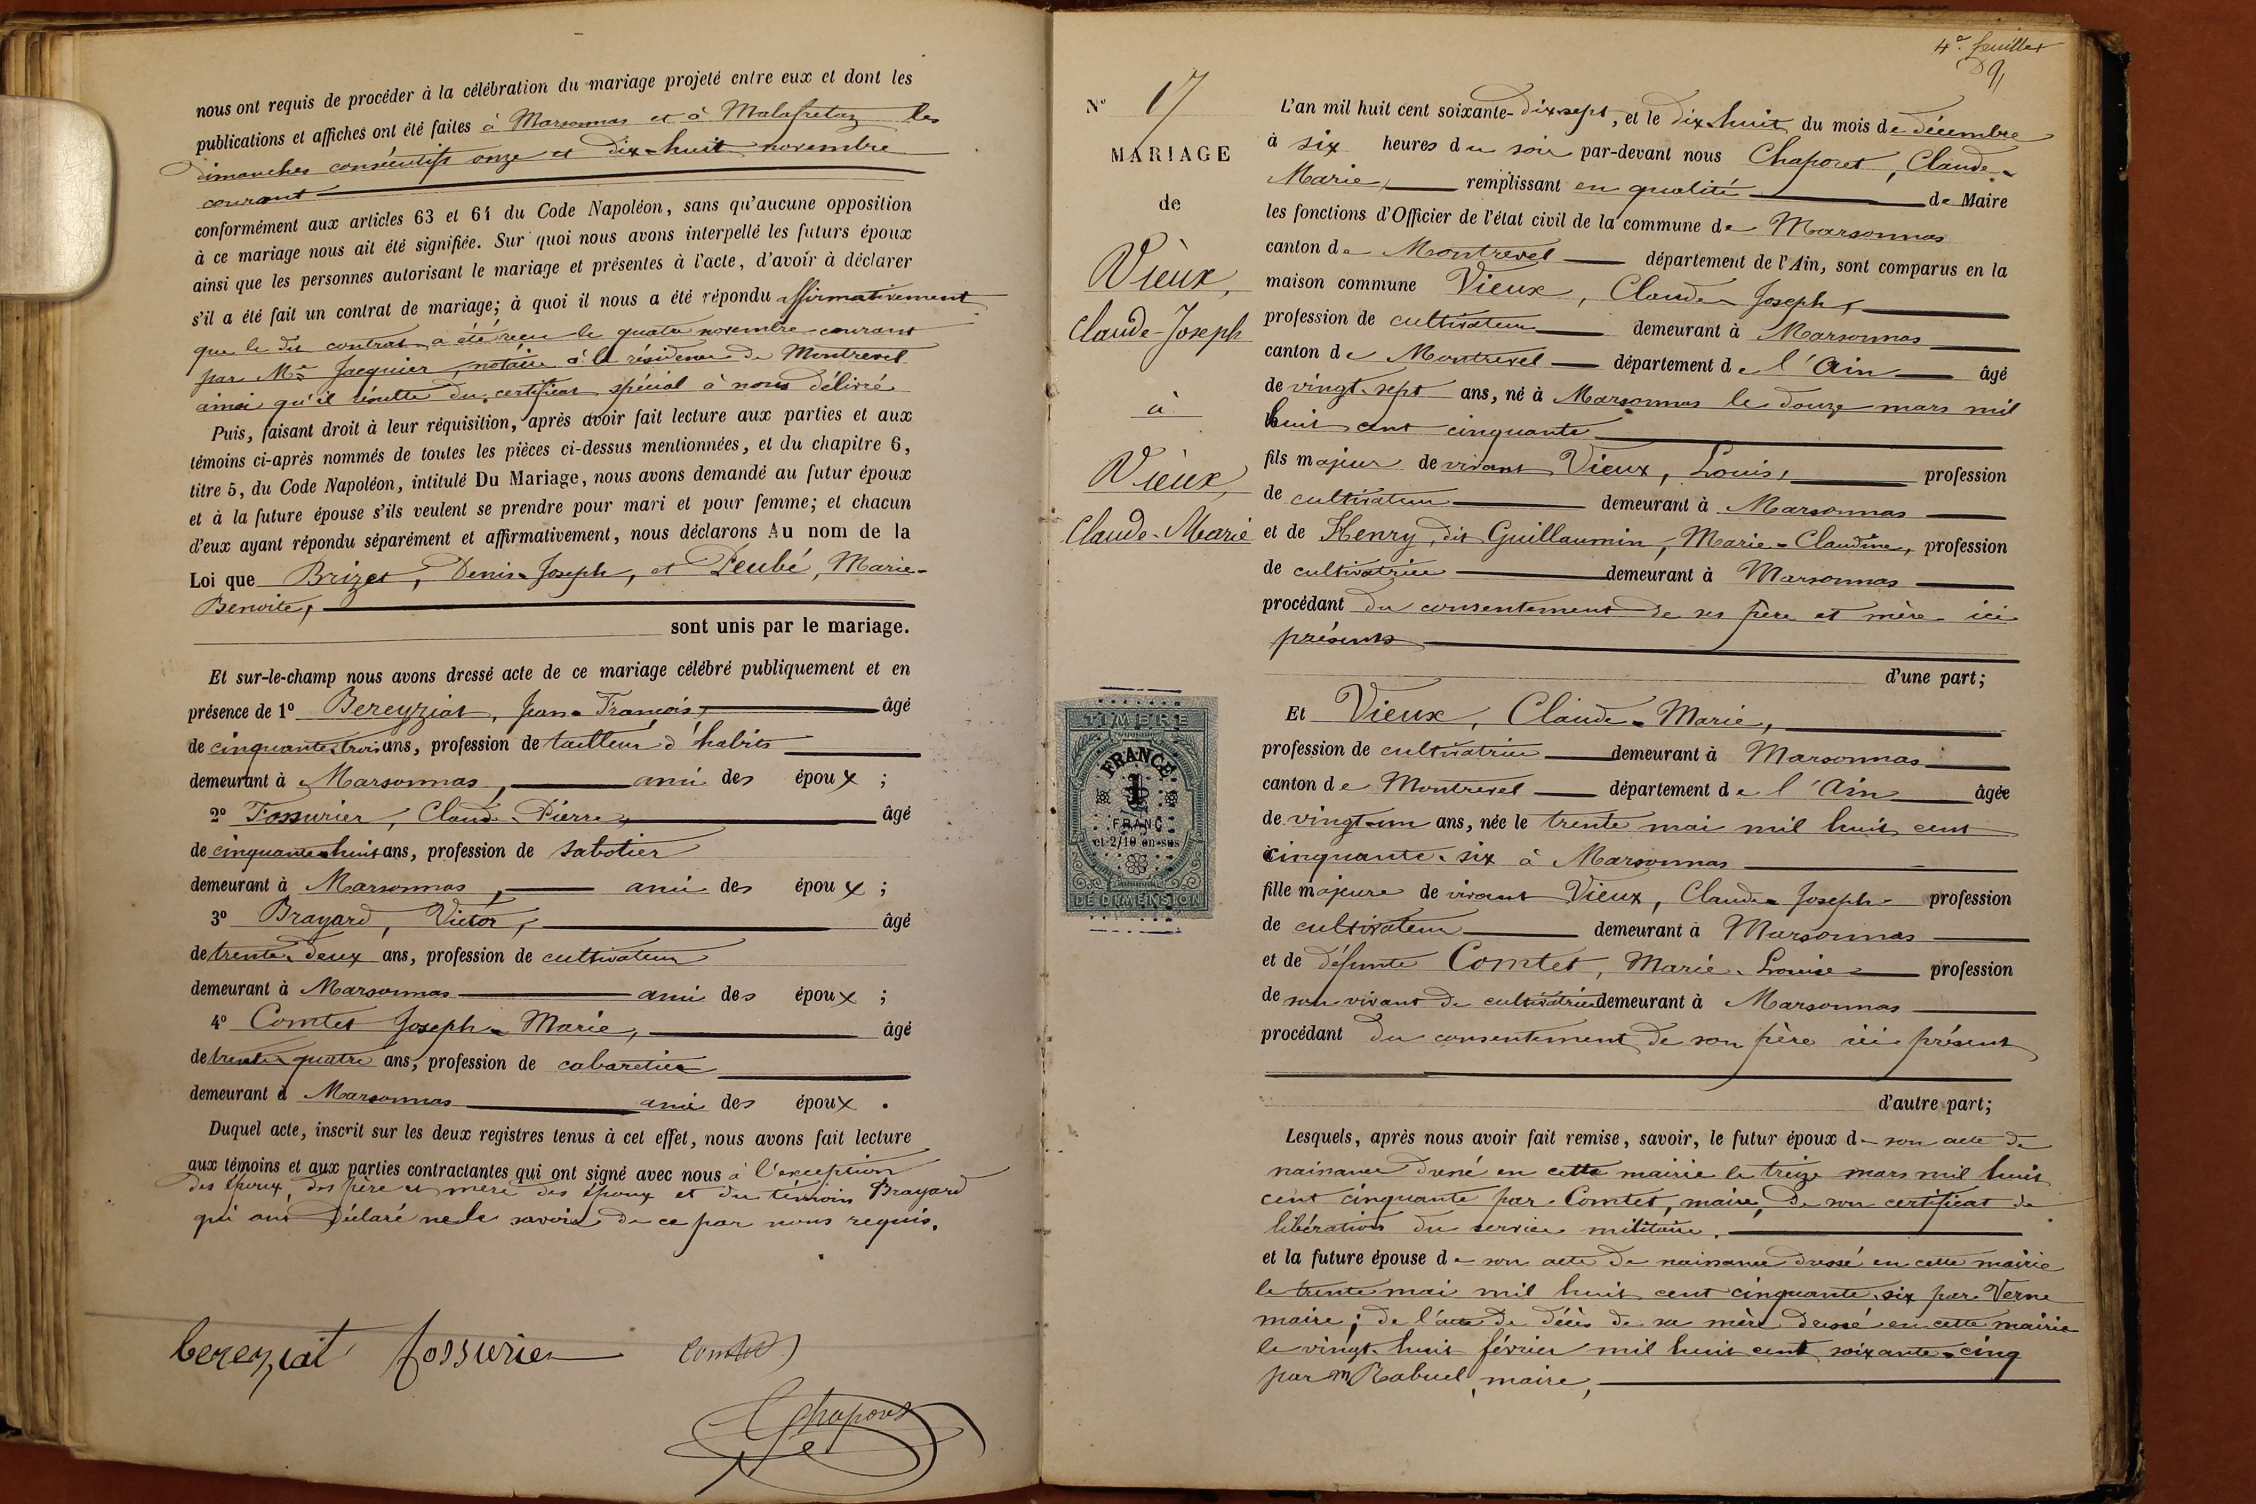 nous ont requis de procéder à la célébration du mariage projeté entre eux et dont les
publications et affiches ont été faites à Marsonnas et à Malafretaz les
dimanches consécutifs onze et dix-huit novembre
courant
conformément aux articles 63 et 64 du Code Napoléon, sans qu'aucune opposition
à ce mariage nous ait été signifiée. Sur quoi nous avons interpellé les futurs époux
ainsi que les personnes autorisant le mariage et présentes à l'acte, d'avoir à déclarer
s'il a été fait un contrat de mariage; à quoi il nous a été répondu affirmativement
que le dit contrat a été reçu le quatre novembre courant
par Me Jacquier, notaire à la résidence de Montrevel
ainsi qu'il résulte du certificat spécial à nous délivré
Puis, faisant droit à leur réquisition, après avoir fait lecture aux parties et aux
témoins ci-après nommés de toutes les pièces ci-dessus mentionnées, et du chapitre 6,
titre 5, du Code Napoléon, intitulé Du Mariage, nous avons demandé au futur époux
et à la future épouse s'ils veulent se prendre pour mari et pour femme; et chacun
d'eux ayant répondu séparément et affirmativement, nous déclarons Au nom de la
Loi que Brizet, Denis-Joseph, et Peubé, Marie-
Benoite,
sont unis par le mariage.
Et sur-le-champ nous avons dressé acte de ce mariage célébré publiquement et en
présence de 1º Bereyziat, Jean-François, âgé
de cinquante-trois ans, profession de tailleur d'habits
demeurant à Marsonnas, ami des époux ;
2º Fossurier, Claude-Pierre, âgé
de cinquante-huit ans, profession de sabotier
demeurant à Marsonnas, ami des époux ;
3º Brayard, Victor, âgé
de trente-deux ans, profession de cultivateur
demeurant à Marsonnas ami des époux ;
4º Comtet Joseph-Marie, âgé
de trente-quatre ans, profession de cabaretier
demeurant à Marsonnas ami des époux .
Duquel acte, inscrit sur les deux registres tenus à cet effet, nous avons fait lecture
aux témoins et aux parties contractantes qui ont signé avec nous à l'exception
des époux, des père et mère des époux et du témoin Brayard
qui ont déclaré ne le savoir de ce par nous requis.
bereyziat fossurier Comtet
Chaponet
4e feuillet
Nº 17
MARIAGE
de
Vieux,
Claude-Joseph
à
Vieux,
Claude-Marie
TIMBRE
FRANCE
1
FRANC
et 2/10 en sus
DE DIMENSION
L'an mil huit cent soixante-dix-sept, et le dix-huit du mois de décembre
à six heures du soir par-devant nous Chaponet, Claude-
Marie, remplissant en qualité de Maire
les fonctions d'Officier de l'état civil de la commune de Marsonnas
canton de Montrevel département de l'Ain, sont comparus en la
maison commune Vieux, Claude-Joseph,
profession de cultivateur demeurant à Marsonnas
canton de Montrevel département de l'Ain âgé
de vingt-sept ans, né à Marsonnas le douze mars mil
huit cent cinquante
fils majeur de vivant Vieux, Louis, profession
de cultivateur demeurant à Marsonnas
et de Henry, dit Guillaumin, Marie-Claudine, profession
de cultivatrice demeurant à Marsonnas
procédant du consentement de ses père et mère ici
présents
d'une part;
Et Vieux, Claude-Marie,
profession de cultivatrice demeurant à Marsonnas
canton de Montrevel département de l'Ain âgée
de vingt-un ans, née le trente mai mil huit cent
cinquante-six à Marsonnas
fille majeure de vivant Vieux, Claude-Joseph profession
de cultivateur demeurant à Marsonnas
et de défunte Comtet, Marie-Louise profession
de son vivant de cultivatrice demeurant à Marsonnas
procédant du consentement de son père ici présent
d'autre part;
Lesquels, après nous avoir fait remise, savoir, le futur époux de son acte de
naissance dressé en cette mairie le treize mars mil huit
cent cinquante par Comtet, maire, de son certificat de
libération du service militaire.
et la future épouse de son acte de naissance dressé en cette mairie
le trente mai mil huit cent cinquante-six par Verne
maire; de l'acte de décès de sa mère dressé en cette mairie
le vingt-huit février mil huit cent soixante-cinq
par m Rabuel, maire,